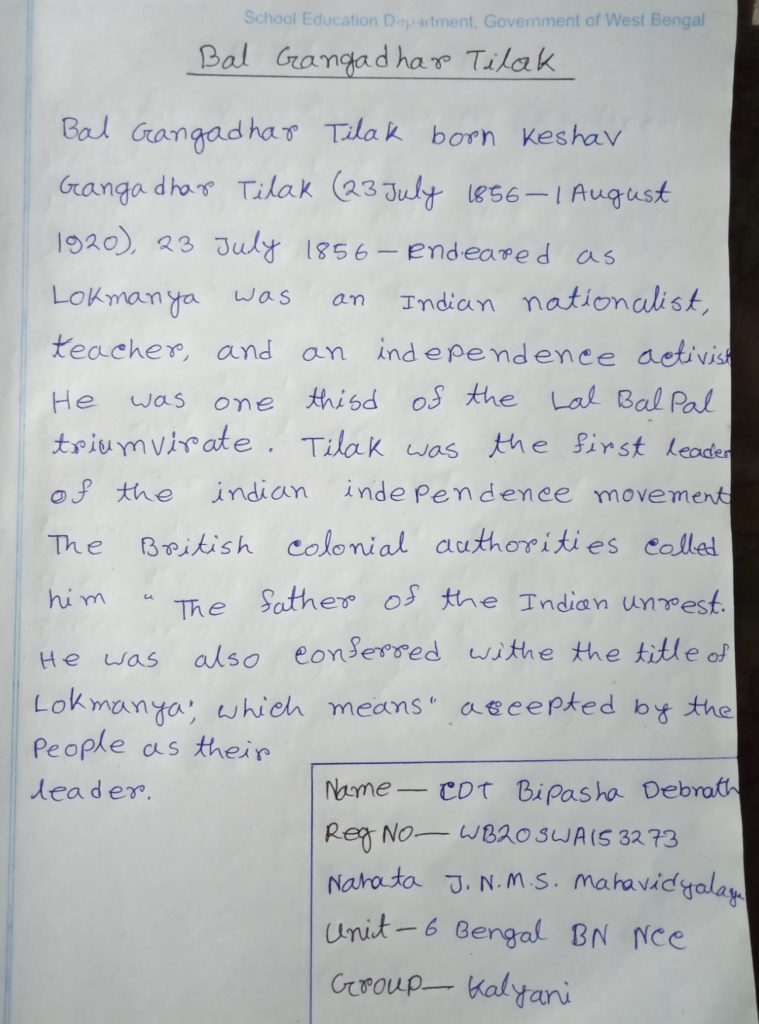 School Education Department, Government of West Bengal
Bal Gangadhar Tilak
Bal Gangadhar Tilak born Keshav
Gangadhar Tilak (23 July 1856 – 1 August
1920), 23 July 1856 – endeared as
Lokmanya was an Indian nationalist,
teacher, and an independence activist
He was one third of the Lal Bal Pal
triumvirate. Tilak was the first leader
of the indian independence movement
The British colonial authorities called
him " The father of the Indian unrest.
He was also conferred withe the title of
Lokmanya', which means " accepted by the
People as their
leader.
Name — CDT Bipasha Debnath
Reg No — WB20SWA153273
Nahata J.N.M.S. Mahavidyalaya
Unit – 6 Bengal BN NCC
Group — Kalyani